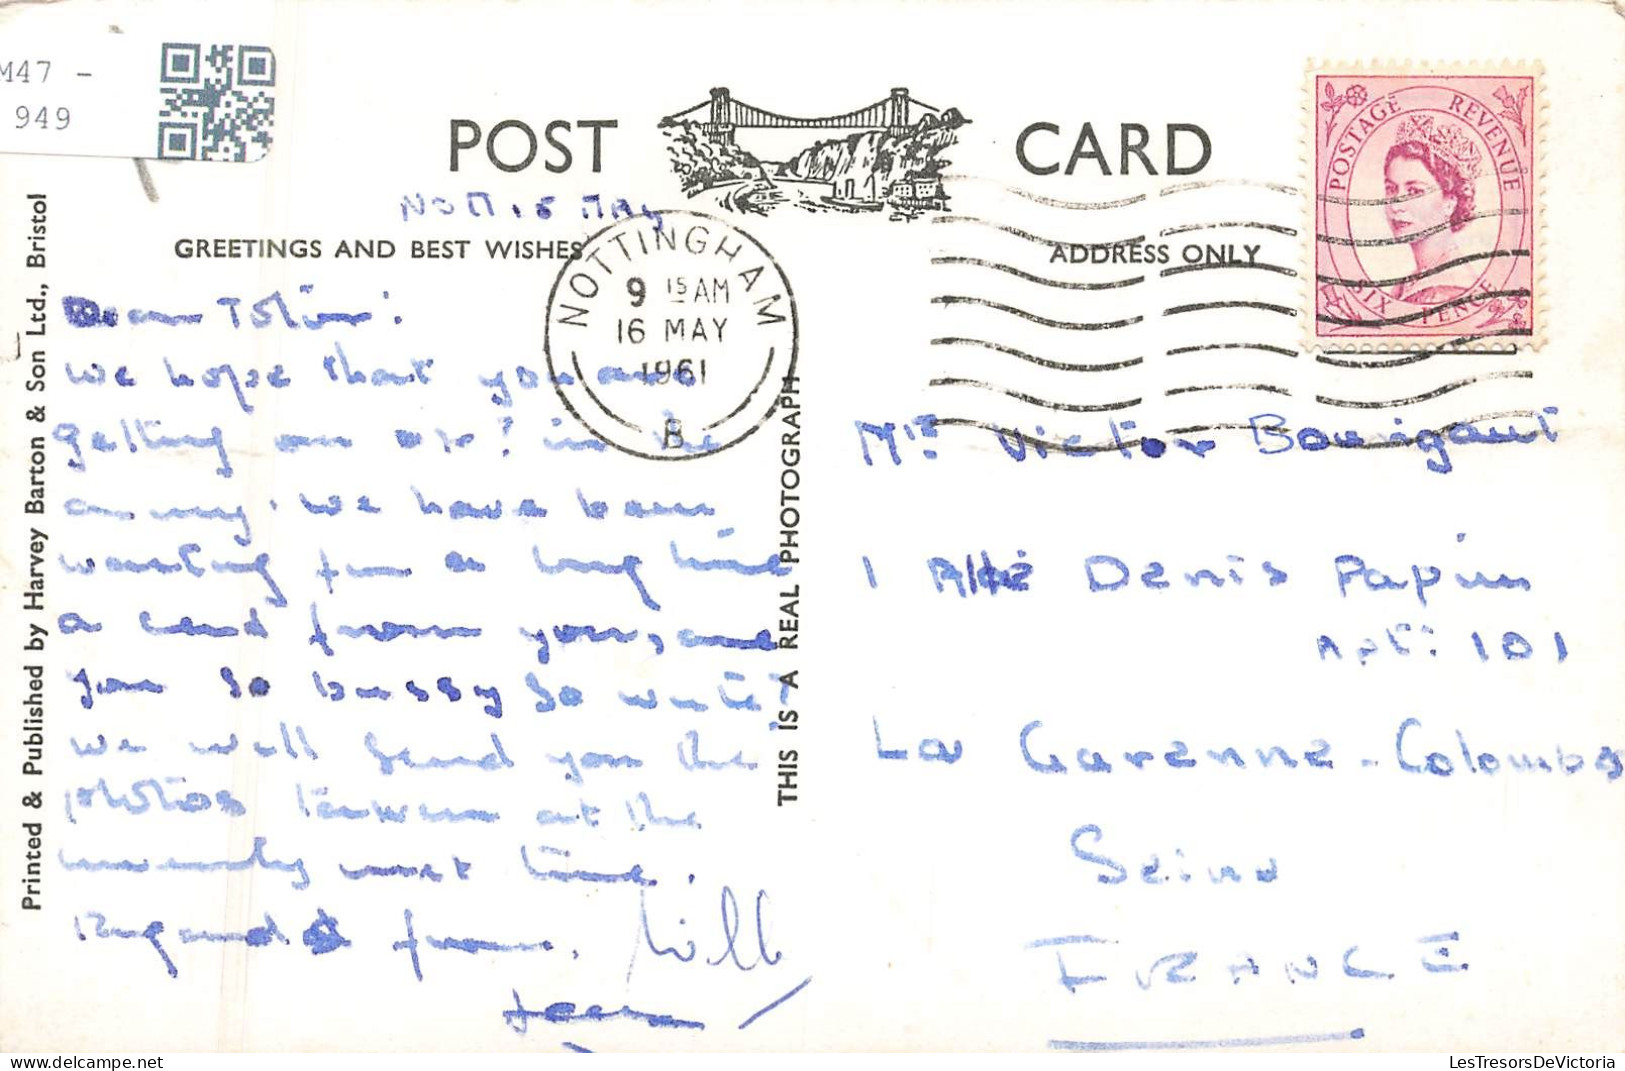 M47 -
949
POST CARD
NOTT. 15 MAY
GREETINGS AND BEST WISHES
ADDRESS ONLY
POSTAGE REVENUE
SIX PENCE
NOTTINGHAM
9 15 AM
16 MAY
1961
B
Printed & Published by Harvey Barton & Son Ltd., Bristol
THIS IS A REAL PHOTOGRAPH
Dear
we hope that you are
getting on in the
army. we have been
waiting for a long time
a card from you, are
you so bussy to write?
we will send you the
photos taken at the
university next time.
Regards from.
Mr Victor Bourigault
1 Allé Denis Papin
Apt: 101
La Garenne-Colombes
Seine
FRANCE
LesTresorsDeVictoria